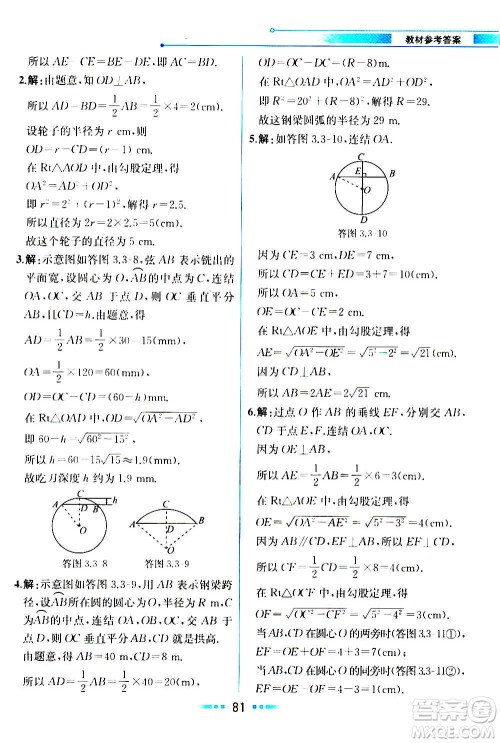 教材参考答案
所以 AE-CE=BF-DF,即 AC=BD.
2.解:由题意,知 OD⊥AB,
所以 AD=BD=1/2 AB=1/2×4=2(cm).
设轮子的半径为 r cm,
则 OD=OC-CD=(r-1)cm.
在 Rt△AOD 中,由勾股定理,得
OA²=AD²+OD²,
即 r²=2²+(r-1)².解得 r=2.5.
所以直径为 2r=2×2.5=5(cm).
故这个轮子的直径为 5 cm.
3.解:示意图如答图 3.3-8,弦 AB 表示铣出的
平面宽,设圆心为 O,AB的中点为 C,连结
OA,OC,OC 交 AB 于点 D,则 OC 垂直平分
AB,记 CD=h.由题意,得
AD=1/2 AB=1/2×30=15(mm),
OA=1/2×120=60(mm),
OD=OC-CD=(60-h)(mm).
在 Rt△OAD 中,OD=√(OA²-AD²),
即 60-h=√(60²-15²).
所以 h=60-√(60²-15²)≈1.9(mm).
故吃刀深度 h 约为 1.9 mm.
A C h D B O
A C D B O
答图 3.3-8 答图 3.3-9
4.解:示意图如答图 3.3-9,用 AB 表示钢梁跨
径,设AB所在的圆的圆心为 O,AB的中点为
C,连结 OA,OC,OC 交 AB 于点 D,则 OC 垂
直平分 AB,CD 就是拱高.
由题意,得 AB=40 m,CD=8 m,
所以 AD=1/2 AB=1/2×40=20(m),
OD=OC-CD=(R-8)m.
在 Rt△OAD 中,OA²=AD²+OD²,
即 R²=20²+(R-8)².解得 R=29.
故这钢梁圆弧的半径为 29 m.
5.解:如答图 3.3-10,连结 OA.
C A E B O D
答图 3.3-10
因为 CE=3 cm,DE=7 cm,
所以 CD=CE+ED=3+7=10(cm).
所以 OA=OC=5 cm.
所以 OE=OC-CE=5-3=2(cm).
在 Rt△AOE 中,由勾股定理,得
AE=√(OA²-OE²)=√(5²-2²)=√21(cm).
因为直径 CD⊥AB,
所以 AB=2AE=2√21(cm).
6.解:过点 O 作 AB 的垂线 EF,分别交 AB,
CD 于点 E,F,连结 OA,OC.
因为 OE⊥AB,
所以 AE=1/2 AB=1/2×6=3(cm).
在 Rt△AOE 中,由勾股定理,得
OE=√(OA²-AE²)=√(5²-3²)=4(cm).
因为AB∥CD,OE⊥AB,所以OF⊥CD.
所以 CF=1/2 CD=1/2×8=4(cm).
在 Rt△OCF 中,由勾股定理,得
OF=√(OC²-CF²)=√(5²-4²)=3(cm).
当 AB,CD 在圆心 O 的两旁时(答图 3.3-11①),
EF=OE+OF=4+3=7(cm);
当 AB,CD 在圆心 O 的同旁时(答图 3.3-11②),
EF=OE-OF=4-3=1(cm).
81